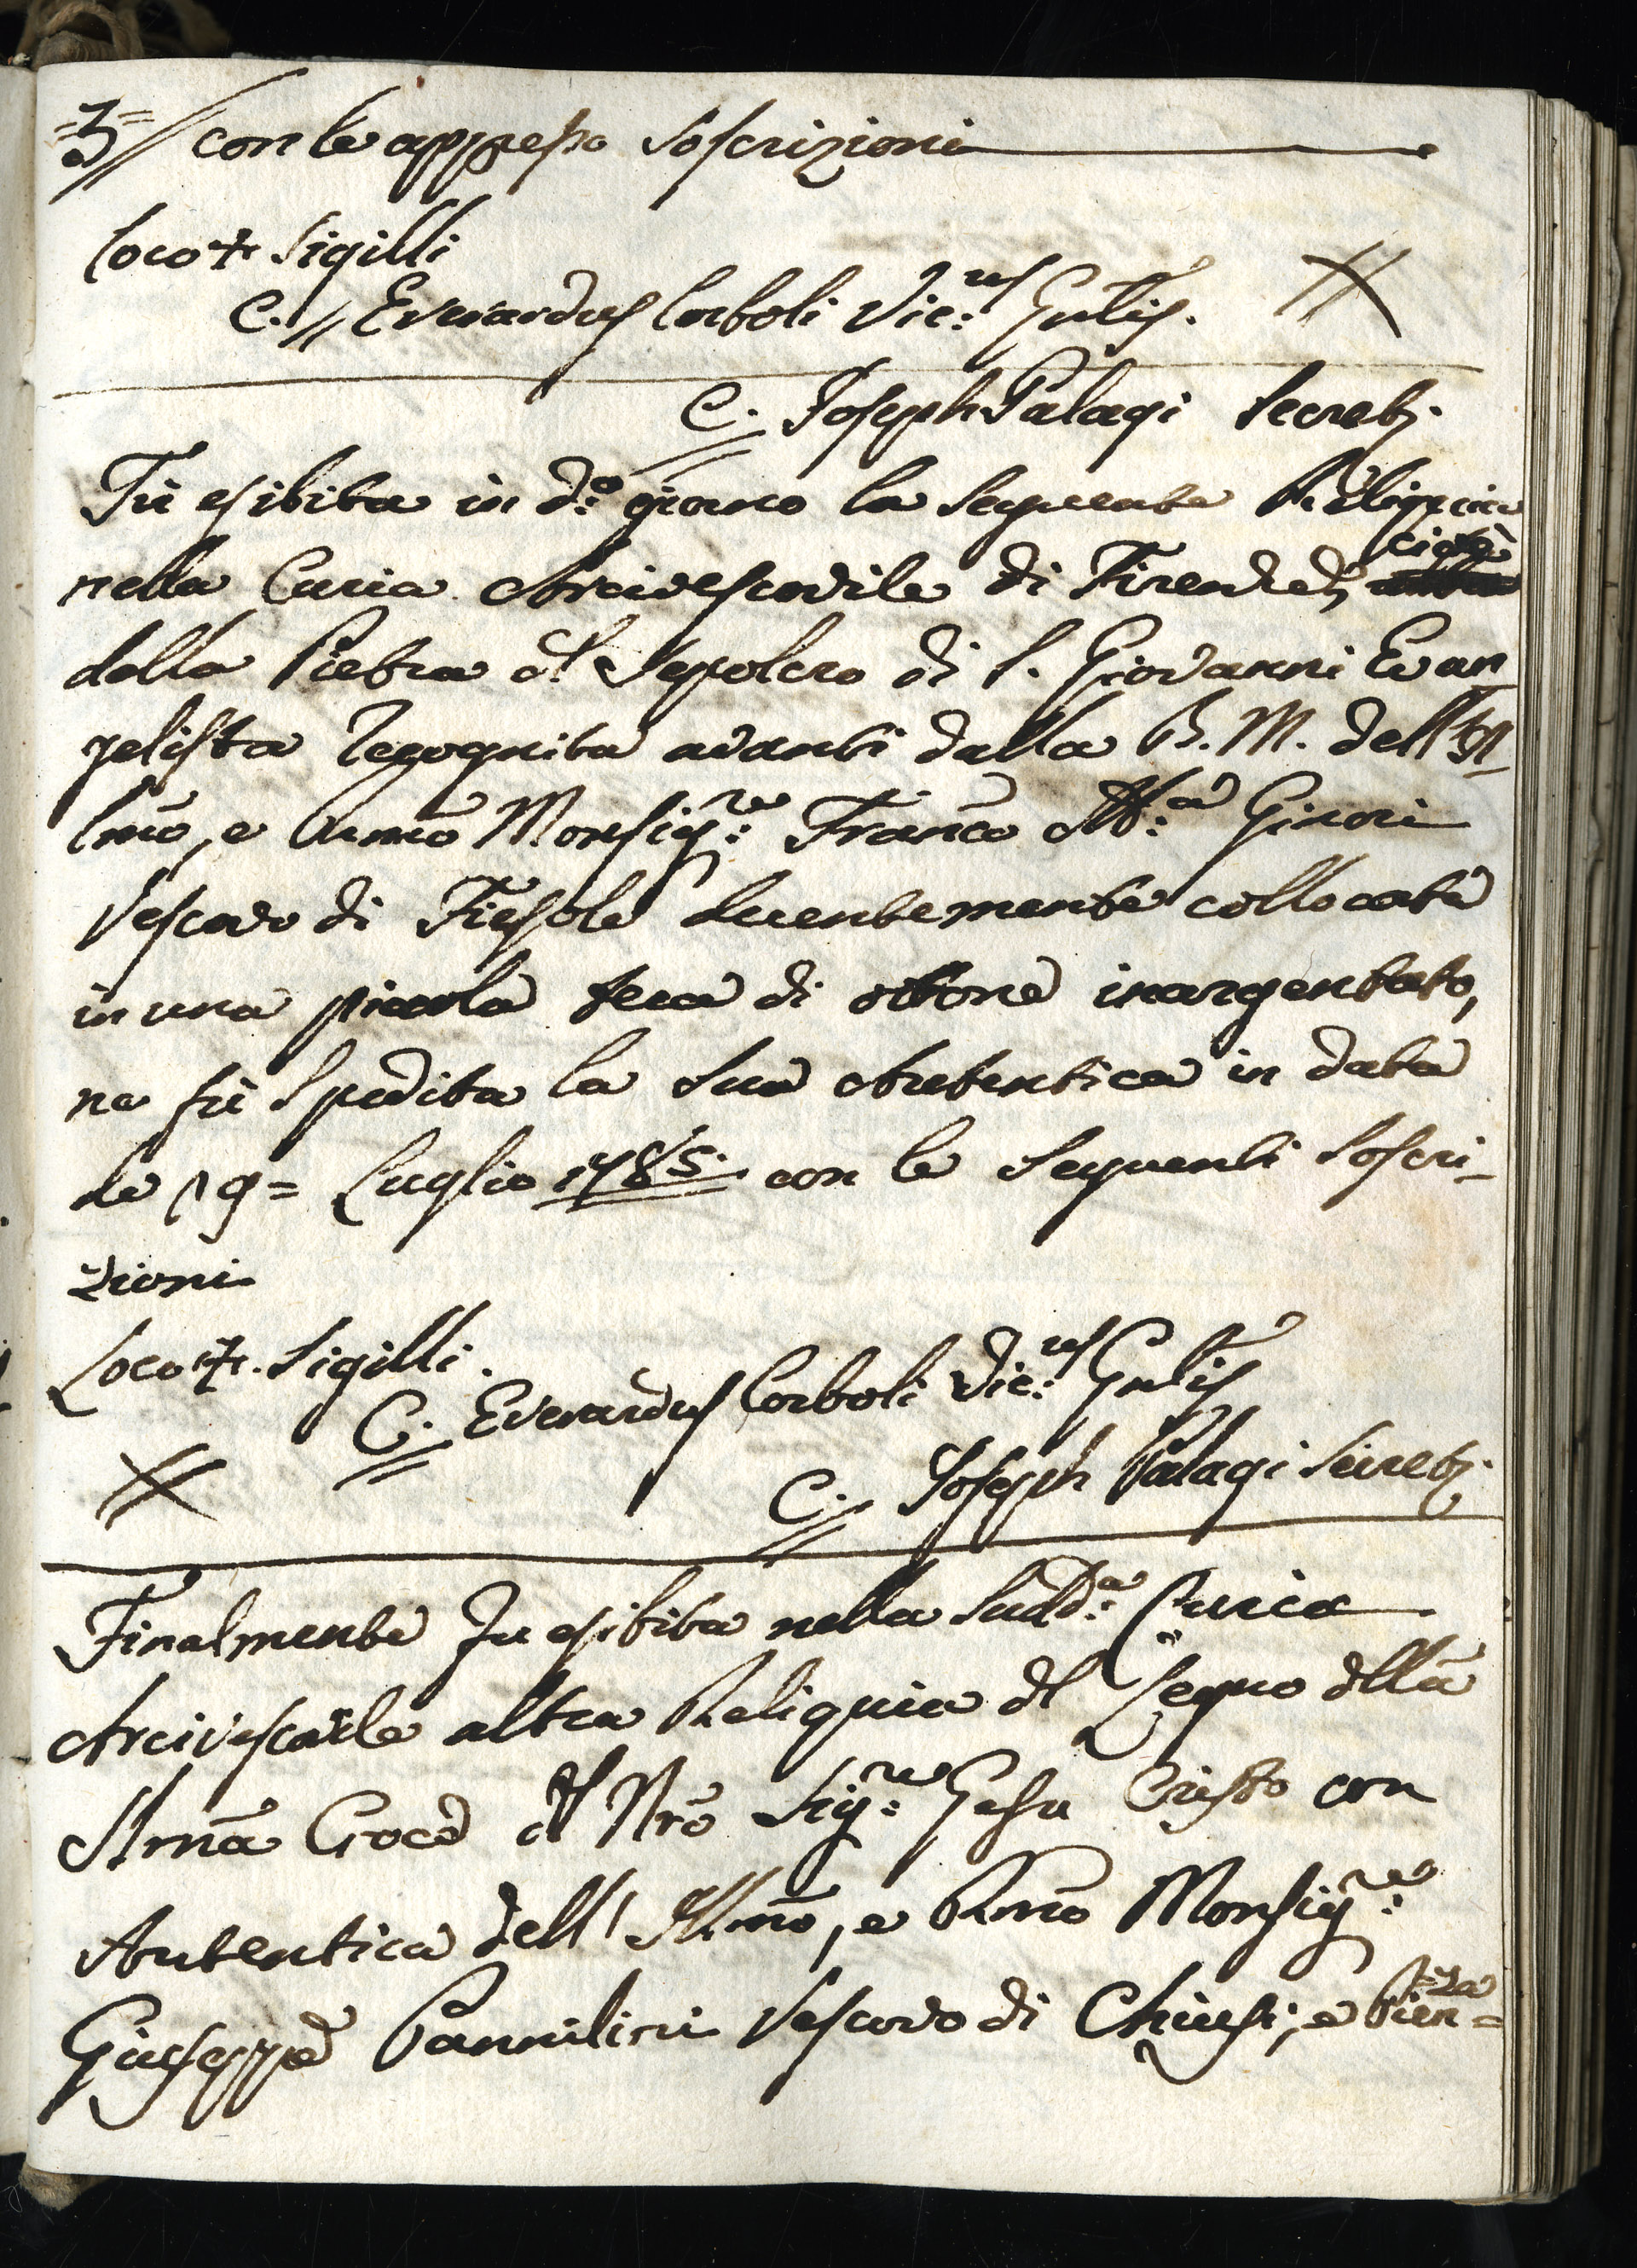 =3=// con le appresso Soscrizioni
Loco + Sigilli
C. // Everardus Corboli Vic:us Gnlis.
C. Joseph Palagi Secret.
Fù esibita in d:o giorno la Seguente Reliquia
nella Curia Arcivescovile di Firenze, cioè
della Pietra dl Sepolcro di S. Giovanni Evan
gelista recognita avanti dalla B. M. dell' Il-
lmo, e Rmmo Monsig:re Franco M:a Ginori
Vescovo di Fiesole decentemente collocata
in una piccola teca di ottone inargentato,
ne fù Spedita la Sua Autentica in data
de 19= Luglio 1785. con le Seguenti Soscri-
zioni
Loco +. Sigilli.
C. Everardus Corboli Vic:us Gnlis
C. Joseph Palagi Secret.
Finalmente fu esibita nella Sudd:a Curia
Arcivescovile altra Reliquia dl Legno dlla
SSma Croce dl Nro Sig:re Gesu Cristo con
Autentica dell' Illmo, e Rmo Monsig:re
Giuseppe Pannilini Vescovo di Chiusi, e Pien=za